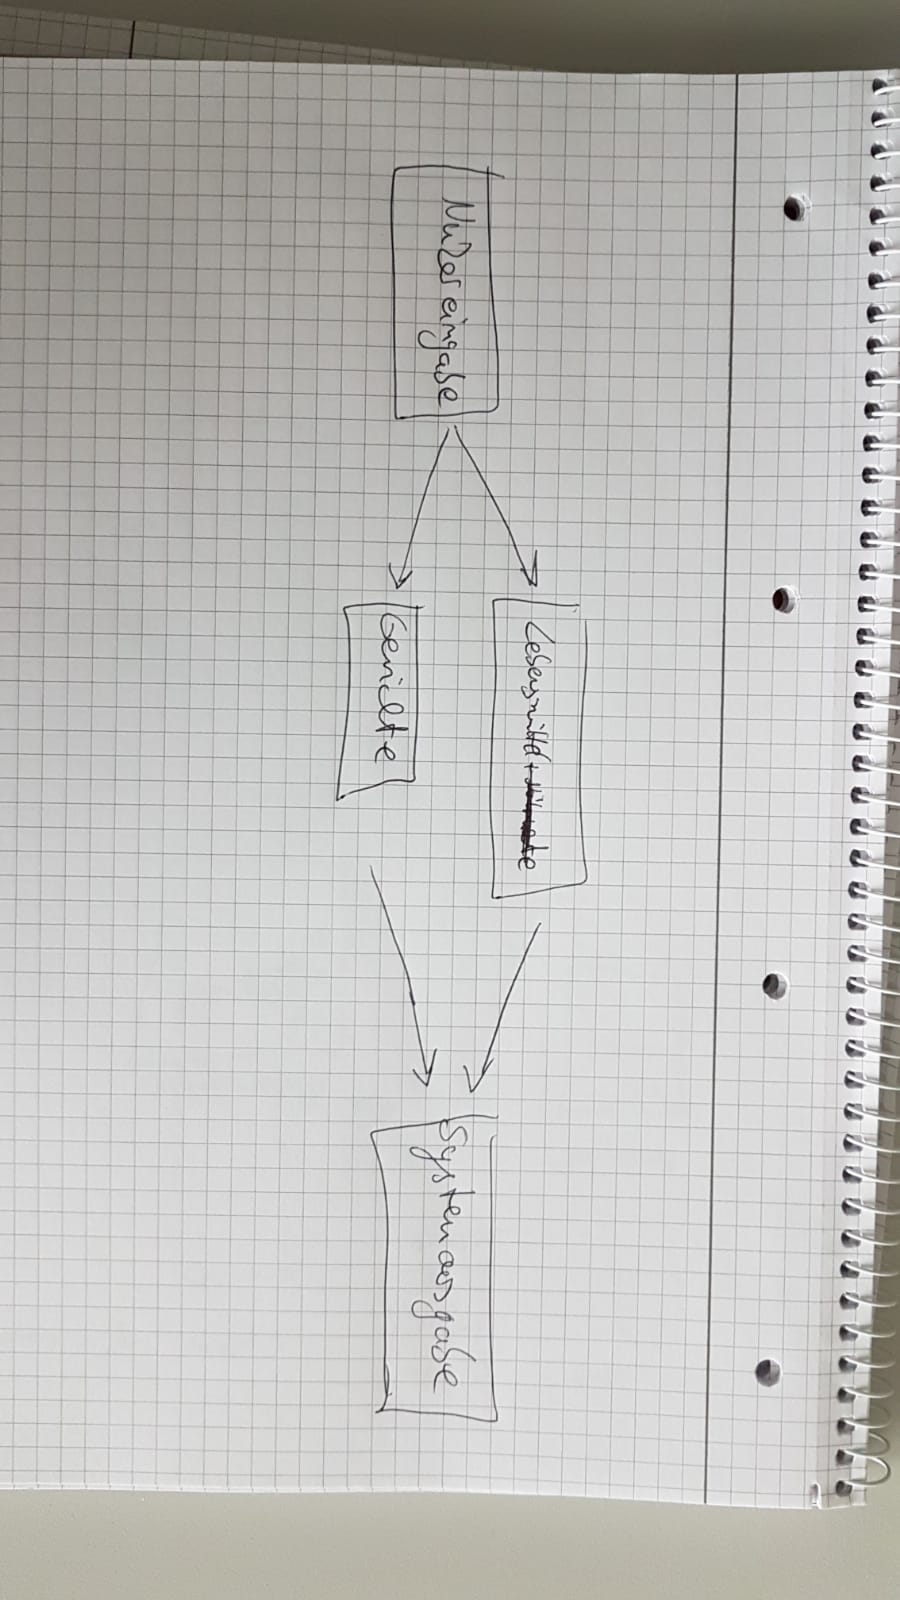 Nuzereingabe
Lebensmittel +
Gerichte
Systemausgabe